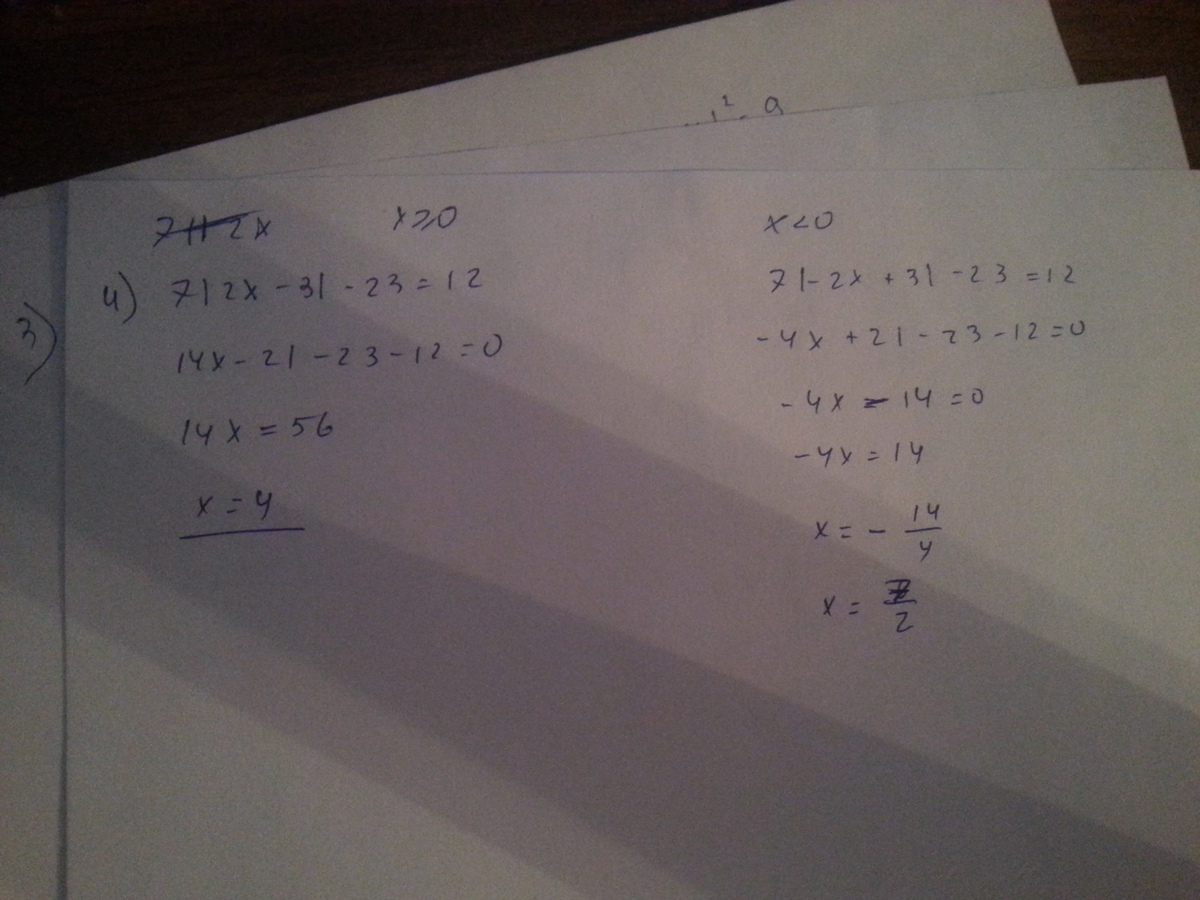 ² - 9
7|| 2x x≥0
3)
4) 7|2x - 3| - 23 = 12
14x - 21 - 23 - 12 = 0
14x = 56
x = 4
x<0
7|-2x + 3| - 23 = 12
-4x + 21 - 23 - 12 = 0
-4x - 14 = 0
-4x = 14
x = - 14/4
x = 7/2